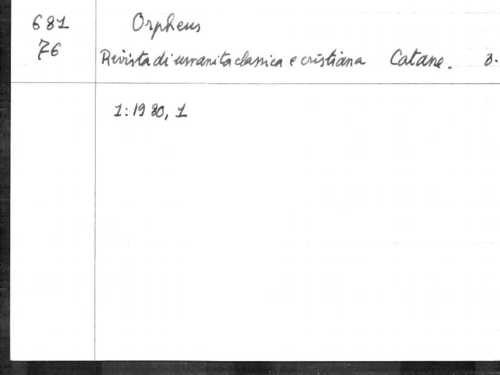 681 Orpheus
76 Rivista di umanita classica e cristiana Catane. 3.
1:1980, 1